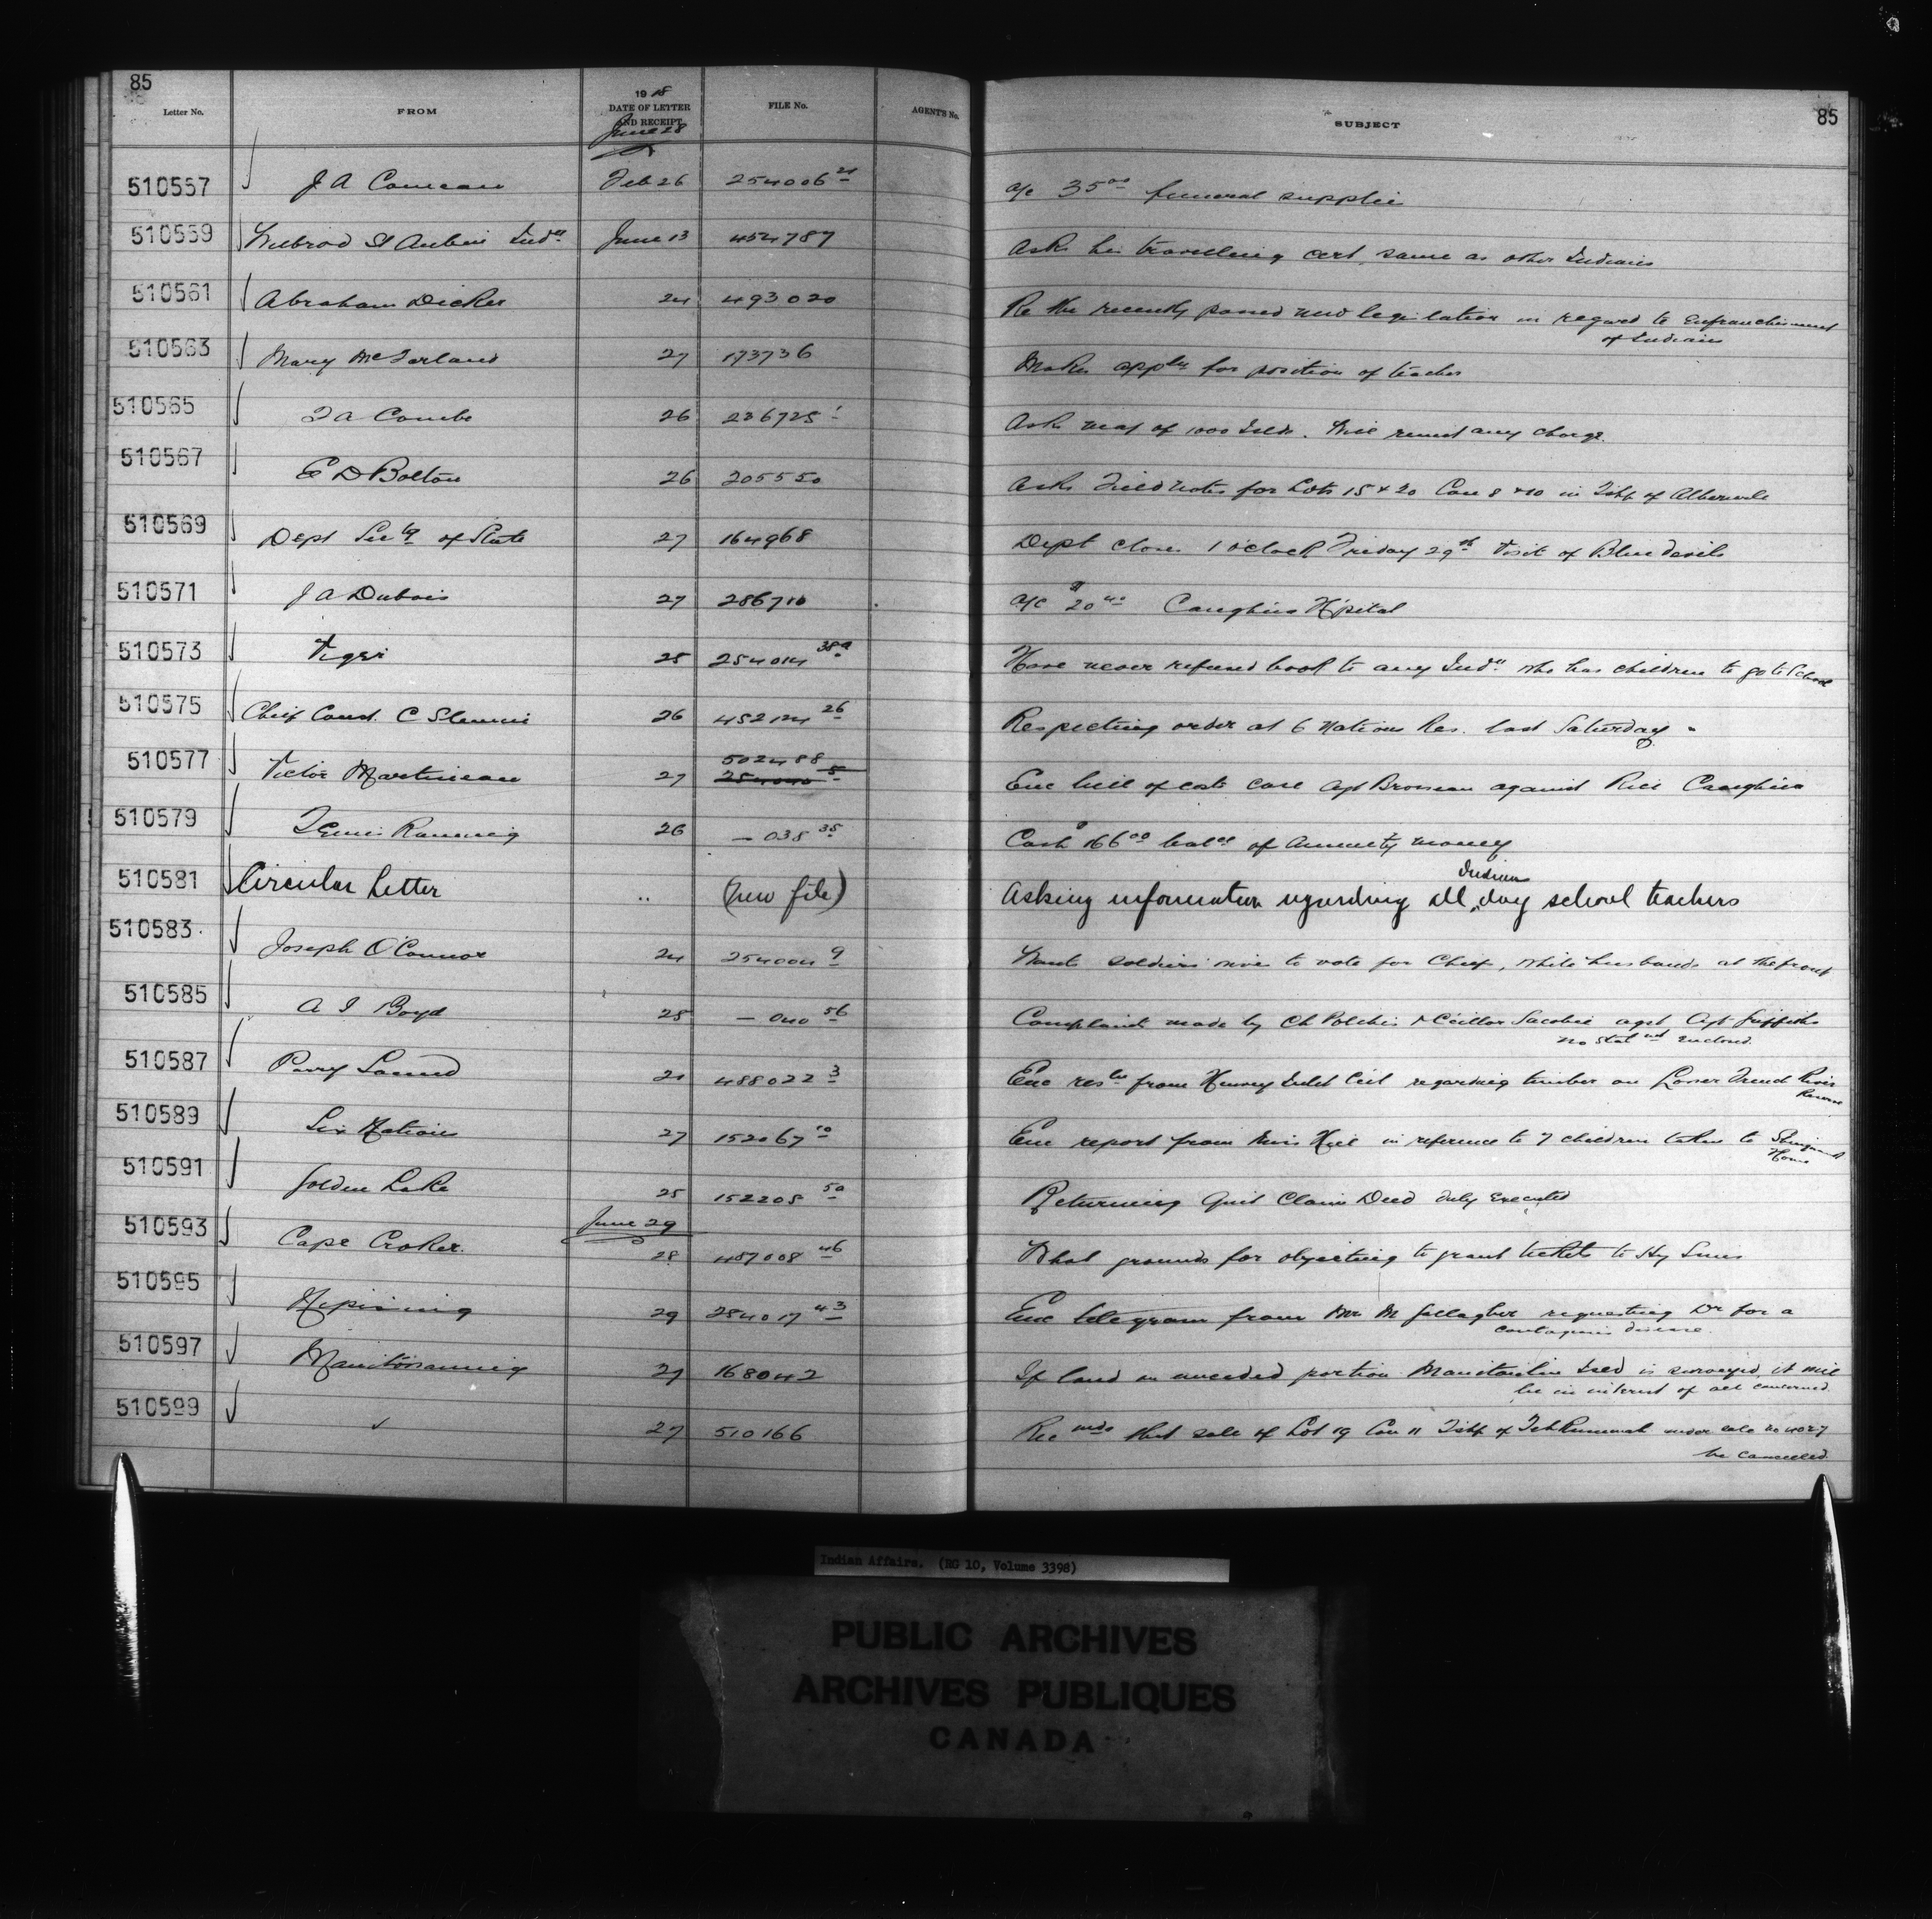 85
Letter No. FROM 1918 DATE OF LETTER AND RECEIPT FILE No. AGENT'S No. SUBJECT 85
June 28
510557 J A Comeau Feb 26 254006 a/c 35 00 funeral supplie
510559 St Aubin Indn June 13 454787 Asks for travelling cert. same as other Indians
510561 Abraham Dicker 24 493020 Re the recently passed new legislation in regard to Enfranchisement
of Indians
510563 Mary McFarland 27 173736 Makes appln for position of teacher
510565 Combe 26 236725 Asks map of 1000 Islds. Will remit any charge.
510567 E D Bolton 26 205550 Asks Field notes for Lots 15 & 20 Con 8 & 10 in Tshp of
510569 Dept Secty of State 27 164968 Dept closes 1 o'clock Friday 29th Visit of Blue devils
510571 J A Dubois 27 286710 a/c $20 40 Caughna Hpital
510573 Tiger 25 254014 38a Have never refused book to any Indn who has children to go to School
510575 Chief Const. C 26 452124 26 Respecting order at 6 Nations Res. last Saturday
510577 Victor Martineau 27 502488 5 Enc bill of costs case Agt Brosseau against Rice Caughna
510579 26 — 038 35 Cash $166 00 balce of Annuity money
510581 Circular Letter .. (new file) Asking information regarding all Indian day school teachers
510583 Joseph O'Connor 24 254004 9 Wants soldiers wive to vote for Chief, while husbands at the front
510585 A J Boyd 25 — 040 56 Complaint made by Ch Polchis & Ccillor Sacobie agst Agt Griffiths
no Statmt enclosed.
510587 Parry Sound 21 488022 3 Enc reslu from Henvey Inlet Ccil regarding timber on Lower French River
Reserve
510589 Six Nations 27 152067 10 Enc report from Miss Hill in reference to 7 children taken to
Home
510591 Golden Lake 25 152205 50 Returning Quit Claim Deed duly Executed
June 29
510593 Cape Croker. 28 487008 46 What grounds for objecting to grant tickets to Hy
510595 Nipissing 29 254017 43 Enc telegram from Mr M Gallagher requesting Dr for a
contagious disease.
510597 Manitowaning 27 168042 If land on unceded portion Manitoulin Isld is surveyed, it will
be in interest of all concerned.
510599 " 27 510166 Recmds that sale of Lot 19 Con 11 Tshp of Tehkummah under sale no 4027
be cancelled.
Indian Affairs. (RG 10, Volume 3398)
PUBLIC ARCHIVES
ARCHIVES PUBLIQUES
CANADA